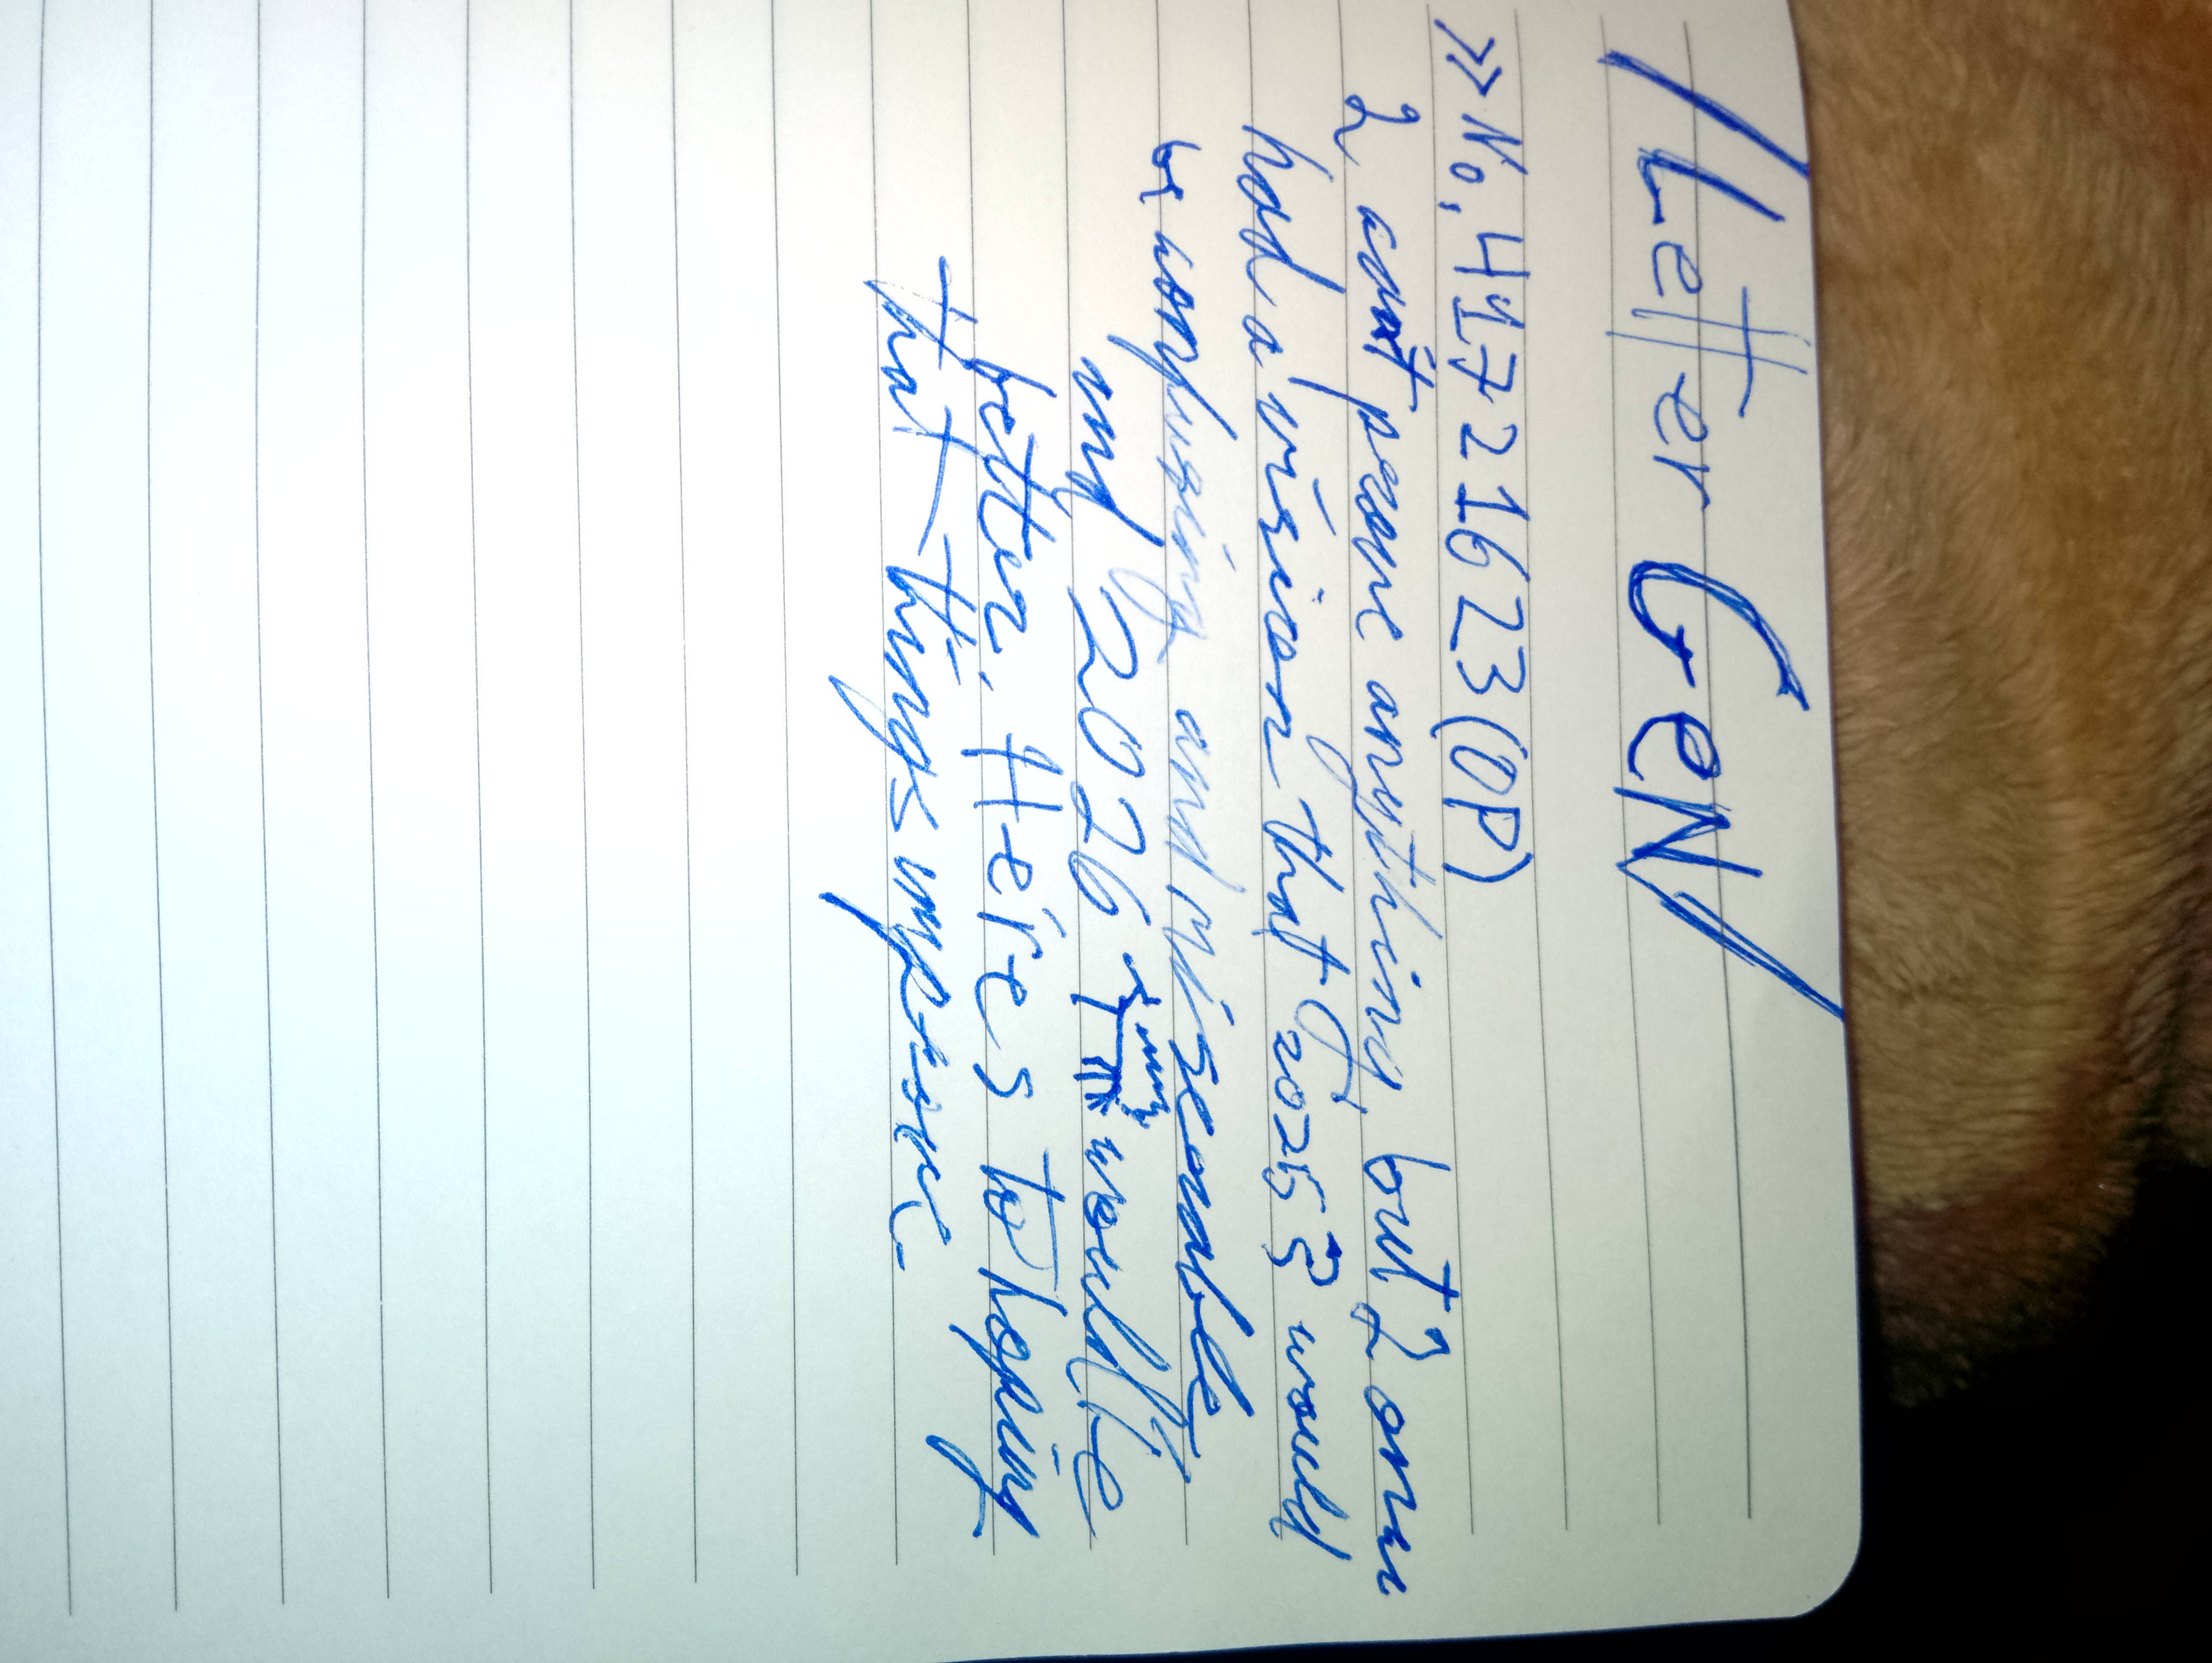 /Letter GeN/
>>No,41721623(OP)
I can't prove anything, but I once
had a vision that 2025 would
be confusing and miserable,
and 2026 would be
better. Here's to hoping
that things improve.